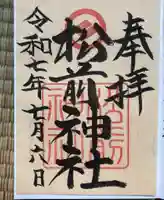 奉拝
松前神社
令和七年七月六日